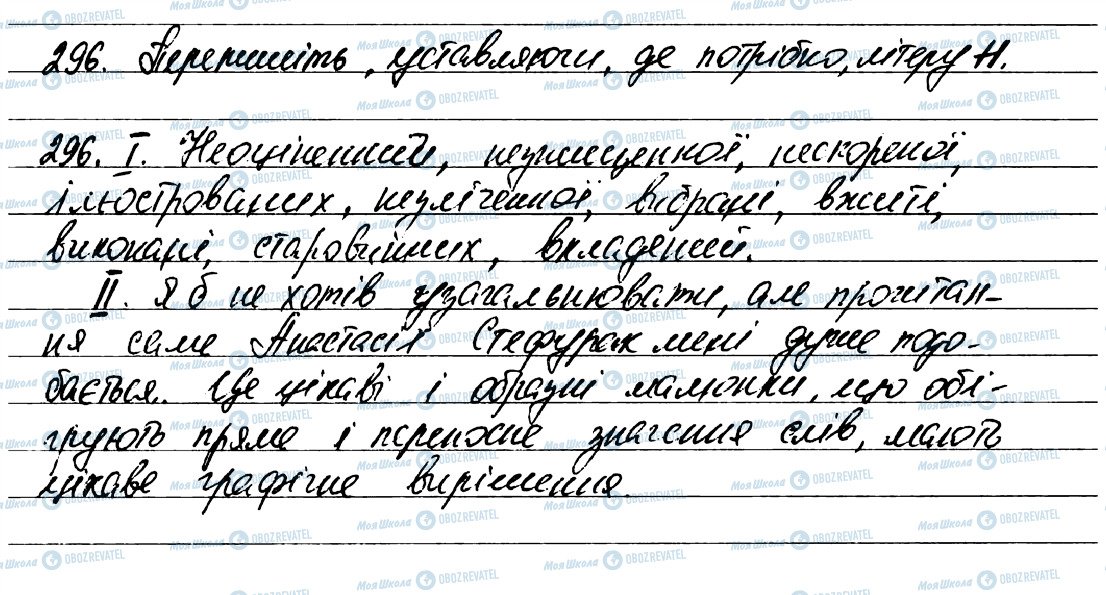 296. Перепишіть, уставляючи, де потрібно, літеру н.
296. I. Неоціненний, незнищенної, нескореної,
ілюстрованих, незліченної, вибрані, вжиті,
виконані, старовинних, вкладений.
II. Я б не хотів узагальнювати, але прочитан-
ня саме Анастасії Стефурак мені дуже подо-
бається. Це цікаві і образні малюнки, що обі-
грують пряме і переносне значення слів, мають
цікаве графічне вирішення.